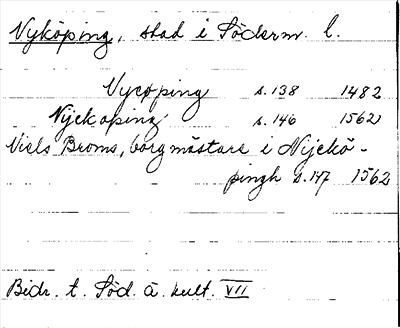 Nyköping, stad i Söderm. l.
Nycoping s. 138 1482
Nijekoping s. 146 1562
Niels Broms, borgmästare i Nijekö-
pingh s. 147 1562
Bidr. t. Söd. ä. kult. VII